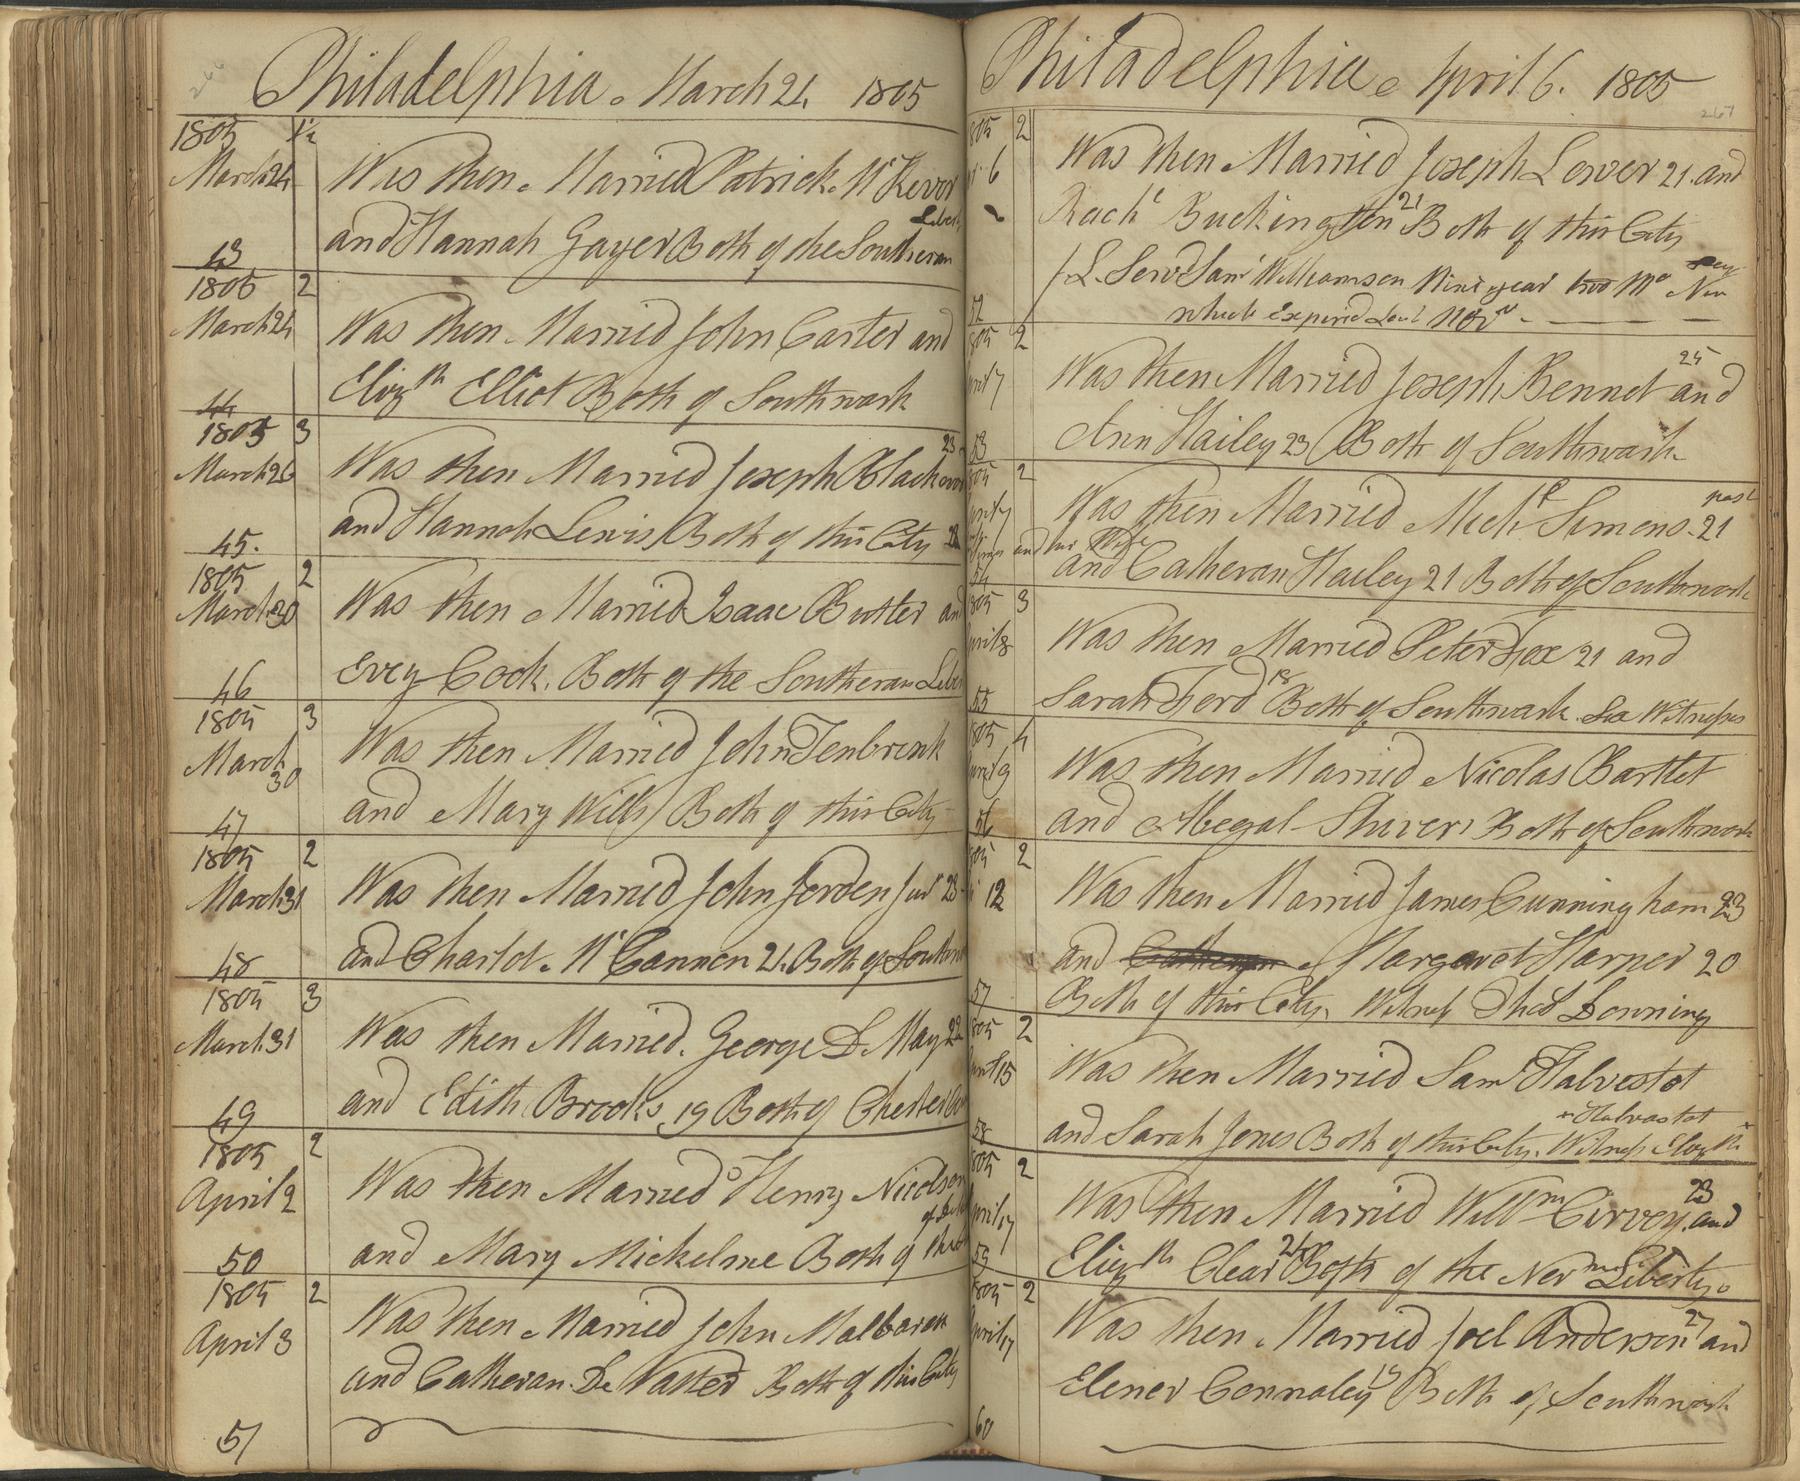 246
Philadelphia March 24 1805
1805 1½
March 24 Was then Married Patrick McKevor
Liber
and Hannah Gayer Both of the Southeran
43
1805 2
March 24 Was then Married John Carter and
Elizth Elliot Both of Southwark
44
1805 3
March 26 Was then Married Joseph Black 23
and Hannah Lewis Both of this City
45
1805 2
March 30 Was then Married Isaac Butler and
Evey Cook. Both of the Southeran Liber
46
1805 3
March 30 Was then Married John Tenbrink
and Mary Wills Both of this City
47
1805 2
March 31 Was then Married John Jorden Junr 23
and Charlot McCannon 21. Both of Southw
48
1805 3
March 31 Was then Married. George D. May 22
and Edith Brooks 19 Both of Chester Co
49
1805 2
April 2 Was then Married Henry Nicolson
and Mary Mickelme Both of
50
1805 2
April 3 Was then Married John Malbaran
and Catheran De Vatter Both of this City
51
Philadelphia April 6. 1805
267
805 2
6 Was then Married Joseph Lower 21. and
Rachl Buckington 21 Both of this City
Servd Saml Williamson Nine year two Mo
which Expired Last Novr
52
805 2
ril 7 Was then Married Joseph Bennet 25 and
Ann Hailey 23 Both of Southwark
53
805 2
pril 7 Was then Married Michl Simons. past 21
and his Wife
and Catheran Hailey 21 Both of Southwark
54
805 3
pril 8 Was then Married Peter Fox 21 and
Sarah Ford 18 Both of Southwark. Six Witnesses
55
805 4
pril 9 Was then Married Nicolas Bartlet
and Abegal Shivers Both of Southwark
56
805 2
12 Was then Married James Cunningham 23
and Margaret Harper 20
Both of this City. Witness Thos Downing
57
805 2
pril 15 Was then Married Saml Halvestot
Halvastot
and Sarah Jones Both of this City. Witness Elizth
58
805 2
pril 17 Was then Married Willm Cirvey 23 and
Elizth Clear 21 Both of the Nern Liberty.
59
805 2
April 17 Was then Married Joel Anderson 27 and
Elener Connaley 19 Both of Southwark
60